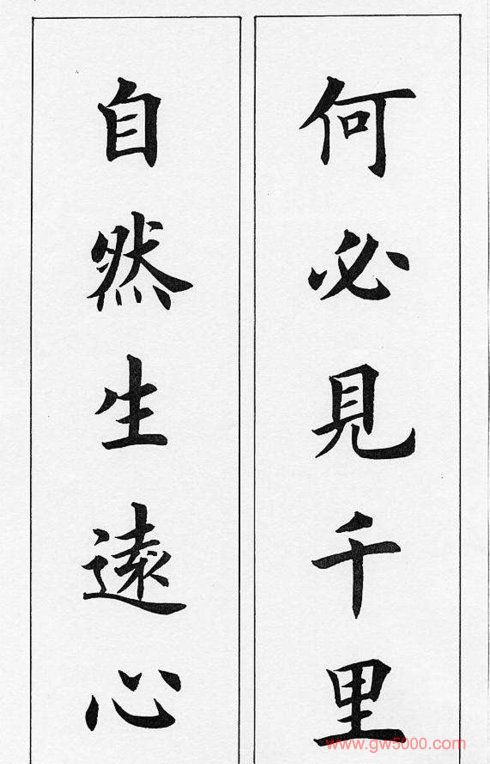 何必見千里
自然生遠心
www.gw5000.com